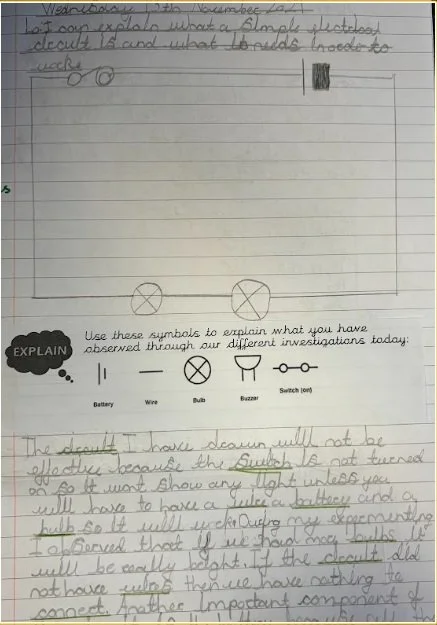 Wednesday 17th November 2021
L.o I can explain what a simple electrical
circuit is and what it needs in order to
work
EXPLAIN
Use these symbols to explain what you have
observed through our different investigations today:
Battery
Wire
Bulb
Buzzer
Switch (on)
The circuit I have drawn will not be
effective because the switch is not turned
on so it wont show any light unless you
will have to have a wire a battery and a
bulb so it will work. During my experimenting
I observed that if we had may bulbs it
will be really bright. If the circuit did
not have wires then we have nothing to
connect. Another important component of